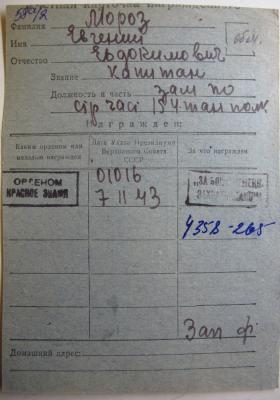 Фамилия Мороз
Имя Евгений
Отчество Евдокимович
Звание Капитан
Должность и часть зам по
стр. часі 154 тан полк
Награжден:
Каким орденом или медалью награжден
Дата Указа Президиума Верховного Совета СССР
За что награжден
ОРДЕНОМ
КРАСНОЕ ЗНАМЯ
01016
7 11 43
435В-265
Зап ф
Домашний адрес: